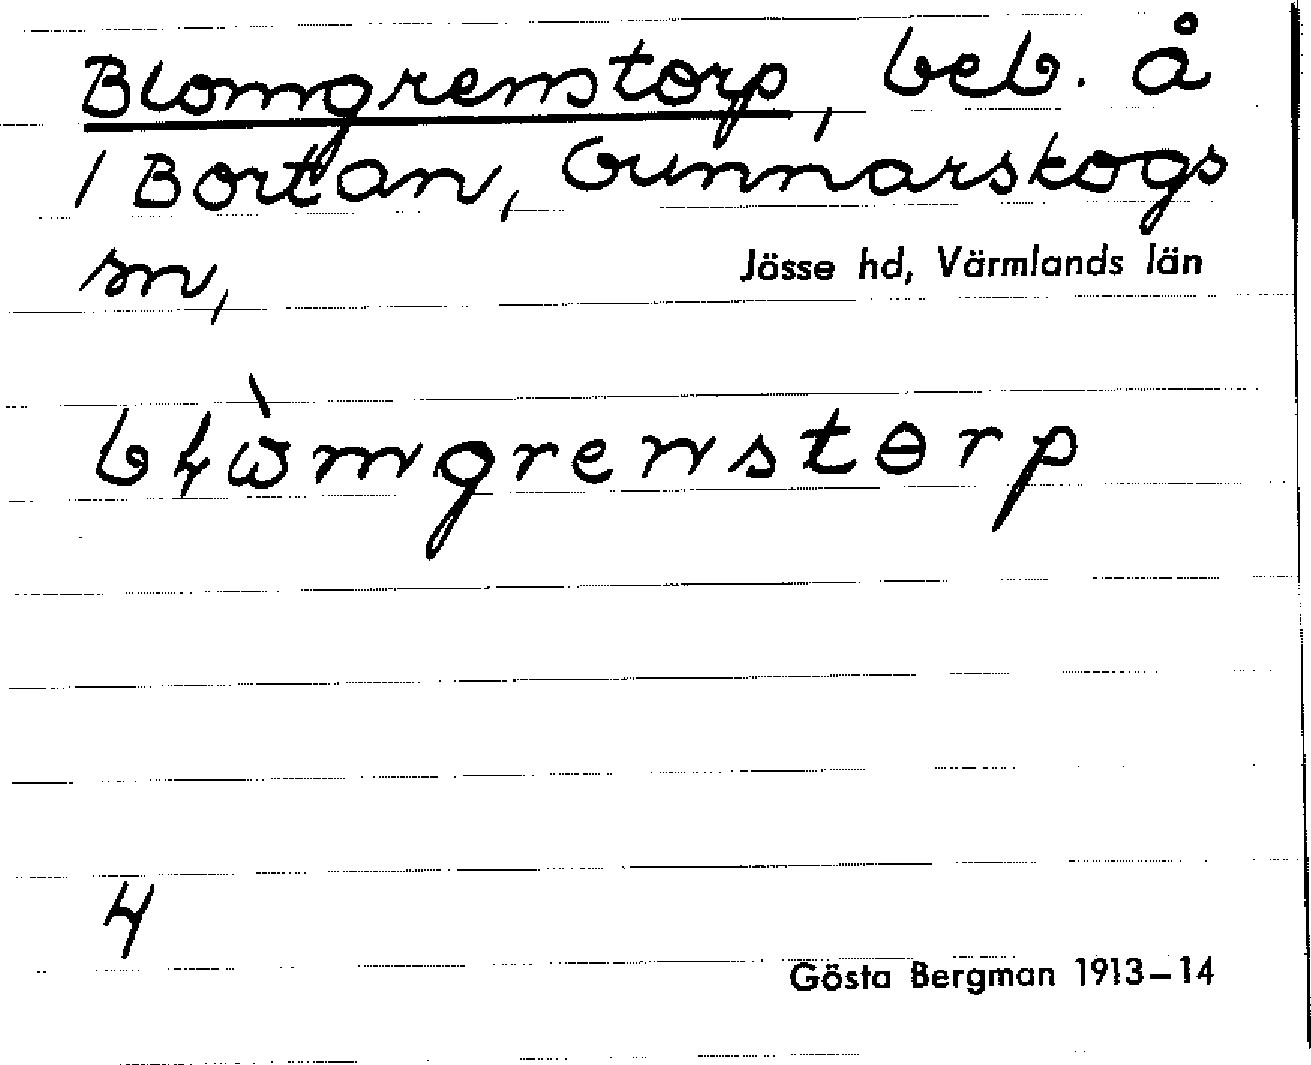 Blomgrenstorp, beb. å
1 Bortan, Gunnarskogs
sn,
Jösse hd, Värmlands län
4
Gösta Bergman 1913–14